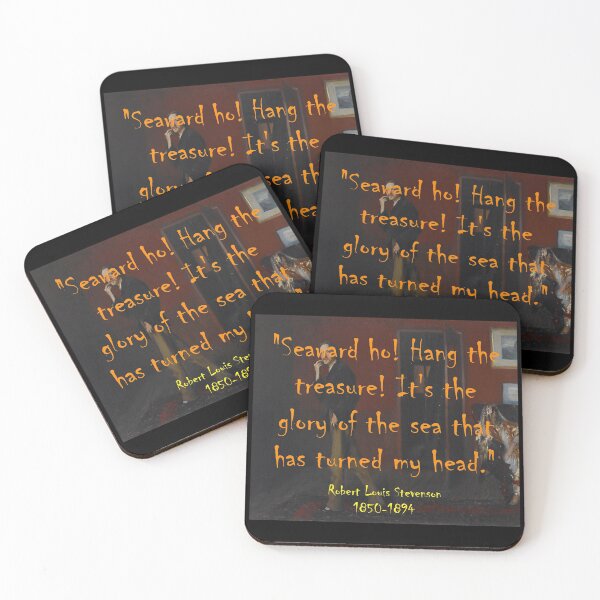 "Seaward ho! Hang the
treasure! It's the
glory of the sea
"Seaward ho! Hang the
treasure! It's the
glory of the sea that
has turned my head.
"Seaward ho! Hang the
treasure! It's the
glory of the sea that
has turned my
Robert Louis
"Seaward ho! Hang the
treasure! It's the
glory of the sea that
has turned my head."
Robert Louis Stevenson
1850-1894